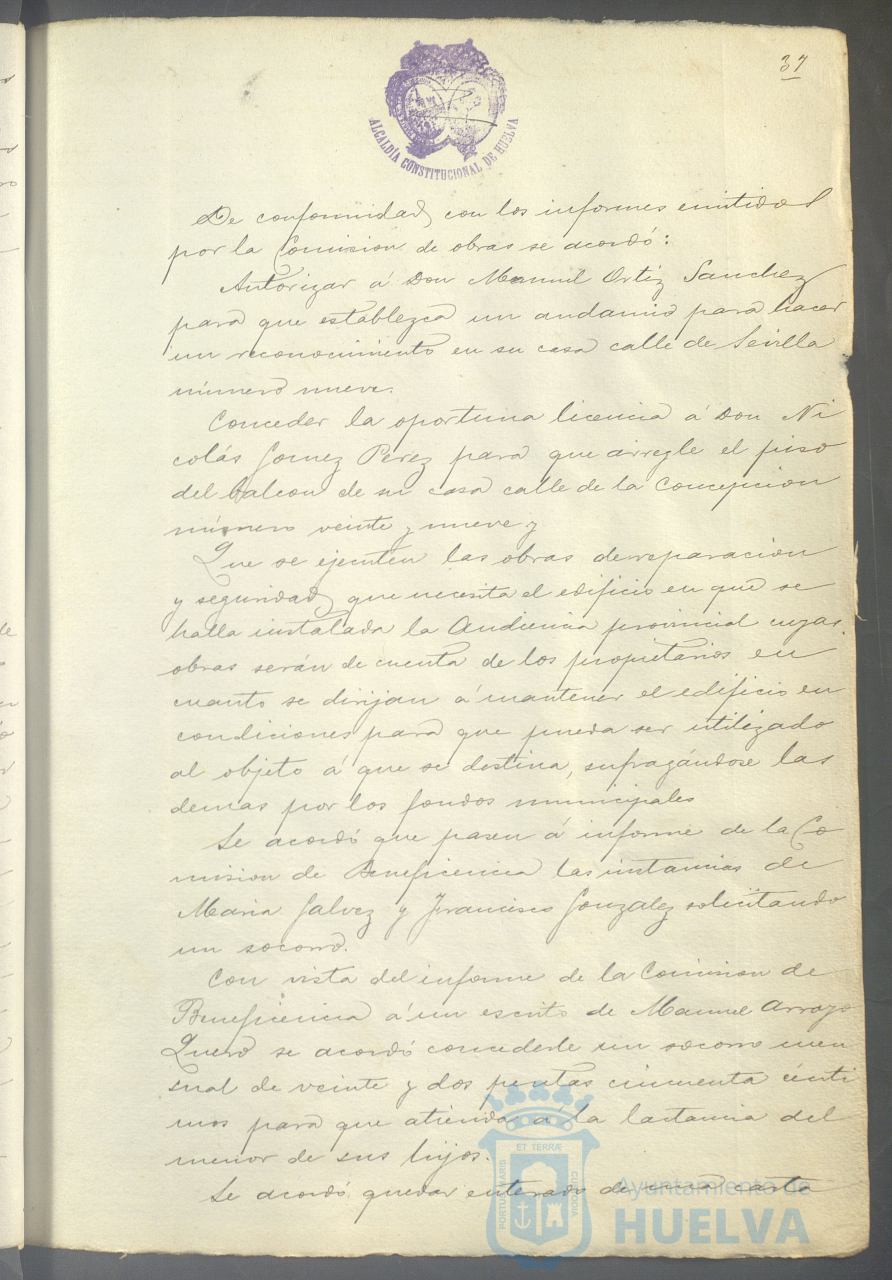 37
ALCALDÍA CONSTITUCIONAL DE HUELVA
De conformidad con los informes emitidos
por la Comision de obras se acordó:
Autorizar á Don Manuel Ortiz Sanchez
para que establezca un andamio para hacer
un reconocimiento en su casa calle de Sevilla
número nueve.
Conceder la oportuna licencia á Don Ni
colás Gomez Perez para que arregle el piso
del balcon de su casa calle de la Concepcion
número veinte y nueve y
Que se ejecuten las obras de reparacion
y seguridad que necesita el edificio en que se
halla instalada la Audiencia provincial cuyas
obras serán de cuenta de los propietarios en
cuanto se dirijan á mantener el edificio en
condiciones para que pueda ser utilizado
al objeto á que se destina, sufragándose las
demas por los fondos municipales
Se acordó que pasen á informe de la Co
mision de Beneficencia las instancias de
Maria Galvez y Francisco Gonzalez solicitando
un socorro.
Con vista del informe de la Comision de
Beneficencia á un escrito de Manuel Arroyo
Quero se acordó concederle un socorro men
sual de veinte y dos pesetas cincuenta cénti
mos para que atienda á la lactancia del
menor de sus hijos.
Se acordó quedar enterado de una carta
PORTUS MARIS ET TERRÆ CUSTODIA
Ayuntamiento de
HUELVA